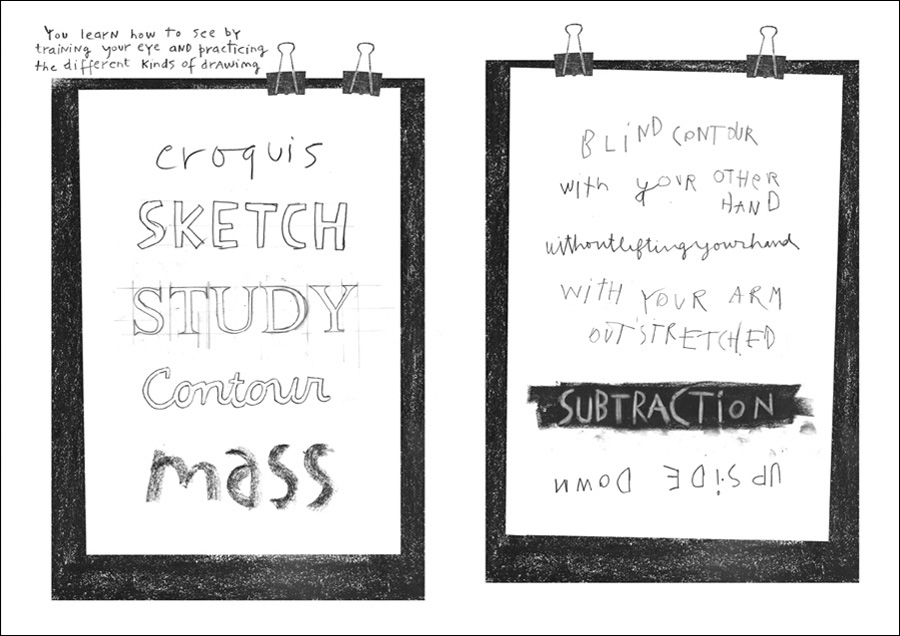 You learn how to see by
training your eye AND practicing
the different kinds of drawing
croquis
SKETCH
STUDY
Contour
mass
BLiND CONTOUR
with yOUR OTHER
HAND
withoutliftingyourhand
WiTH YOUR ARM
OUTSTRETCHED
SUBTRACTiON
UPSiDE DOWN